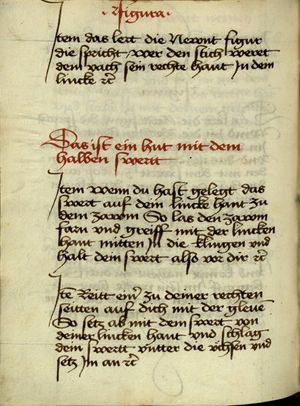 · figura ·
Item das lert die Newnt figur
die spricht wer den stich weret
dem vach sein rechte hant In dem
lincke rc
Das ist ein hut mit dem
halben swertt
Item wenn du hast gelegt das
swert auf dem lincke hant zu
dem zawm So las den zawm
farn und greiff mit der lincken
hant mitten In die klingen vnd
halt dem swert also vor dir rc
Ite Reitt ein' zu deiner rechten
seitten auf dich mit der gleve
So setz ab mit dem swert von
deiner lincken hant vnd schlag
dem swertt vntter die vchsen vnd
setz Im an rc